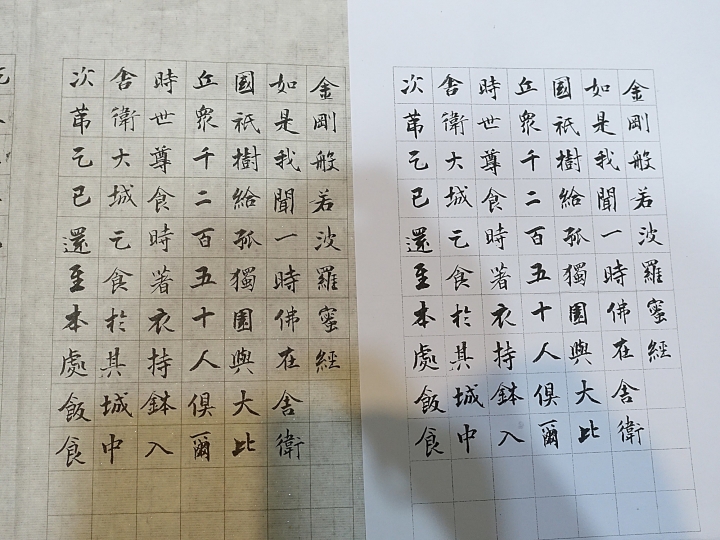 金剛般若波羅蜜經
如是我聞一時佛在舍衛
國祇樹給孤獨園與大比
丘衆千二百五十人俱爾
時世尊食時著衣持鉢入
舍衛大城乞食於其城中
次苐乞已還至本處飯食
金剛般若波羅蜜經
如是我聞一時佛在舍衛
國祇樹給孤獨園與大比
丘衆千二百五十人俱爾
時世尊食時著衣持鉢入
舍衛大城乞食於其城中
次苐乞已還至本處飯食